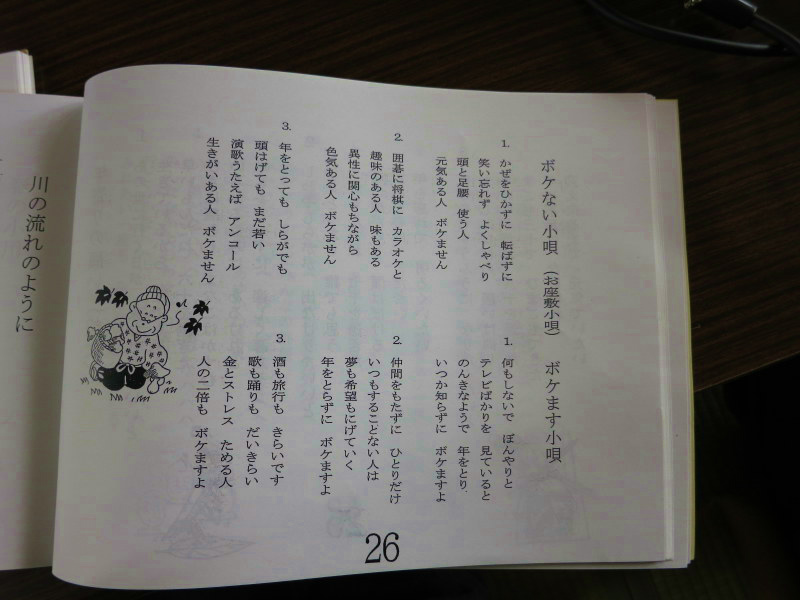 ボケない小唄 (お座敷小唄) ボケます小唄
1. かぜをひかずに 転ばずに
笑い忘れず よくしゃべり
頭と足腰 使う人
元気ある人 ボケません
2. 囲碁に将棋に カラオケと
趣味のある人 味もある
異性に関心もちながら
色気ある人 ボケません
3. 年をとっても しらがでも
頭はげても まだ若い
演歌うたえば アンコール
生きがいある人 ボケません
1. 何もしないで ぼんやりと
テレビばかりを 見ていると
のんきなようで 年をとり
いつか知らずに ボケますよ
2. 仲間をもたずに ひとりだけ
いつもすることない人は
夢も希望もにげていく
年をとらずに ボケますよ
3. 酒も旅行も きらいです
歌も踊りも だいきらい
金とストレス ためる人
人の二倍も ボケますよ
26
川の流れのように